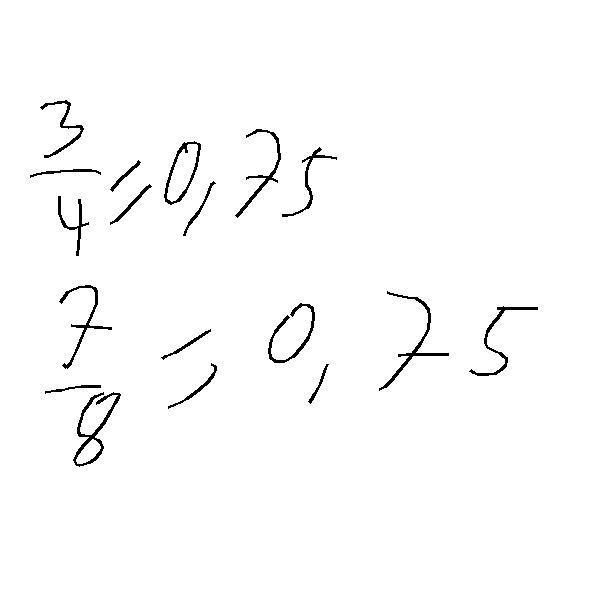 3/4 = 0,75
7/8 = 0,75